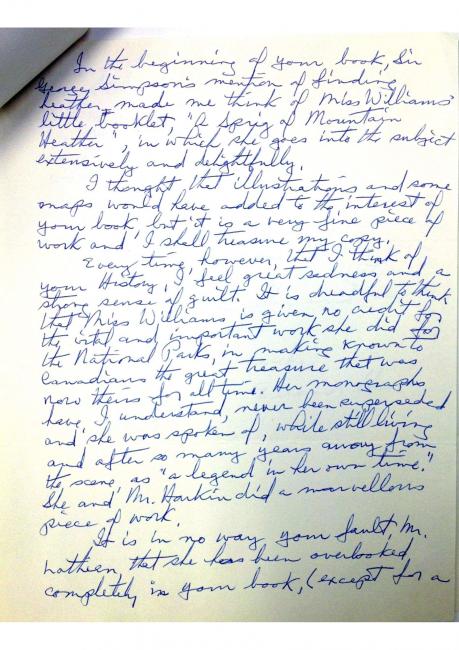 In the beginning of your book, Sir
George Simpson's mention of finding
heather made me think of Miss Williams'
little booklet, "A Sprig of Mountain
Heather", in which she goes into the subject
extensively and delightfully.
I thought that illustrations and some
maps would have added to the interest of
your book, but it is a very fine piece of
work and I shall treasure my copy.
Every time, however, that I think of
your History, I feel great sadness and a
strong sense of guilt. It is dreadful to think
that Miss Williams is given no credit for
the vital and important work she did for
the National Parks, in making known to
Canadians the great treasure that was
now theirs for all time. Her monographs
have, I understand, never been superseded
and she was spoken of, while still living
and after so many years away from
the scene, as "a legend in her own time."
She and Mr. Harkin did a marvellous
piece of work.
It is in no way your fault, Mr.
Lothian, that she has been overlooked
completely in your book, (except for a